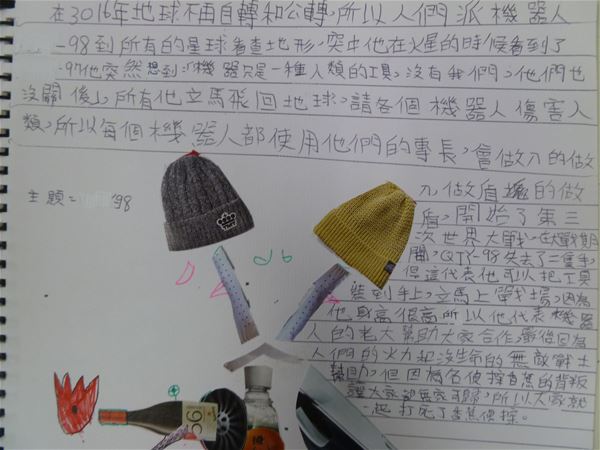 在3016年地球不再自轉和公轉，所以人們派機器人
-98到所有的星球看查地形，突中他在火星的時候看到了
-97他突然想到:機器只是一種人類的工具，沒有我們，他們也
沒關係，所有他立馬飛回地球，請各個機器人傷害人
類，所以每個機器人都使用他們的專長，會做刀的做
刀，做盾塊的做
主題= '98
盾，開始了第三
次世界大戰，在大戰期
間，QTY-98失去了二隻手，
但這代表他可以把工具
裝到手上，立馬上戰場，因為
他身高很高所以他代表機器
人的老大幫助大家合作，最後因為
人們的火力和沒生命的無敵戰士
幫助，但因為名偵探香蕉的背叛
讓大家都無家可歸，所以大家就
一起打死了香蕉偵探。
56